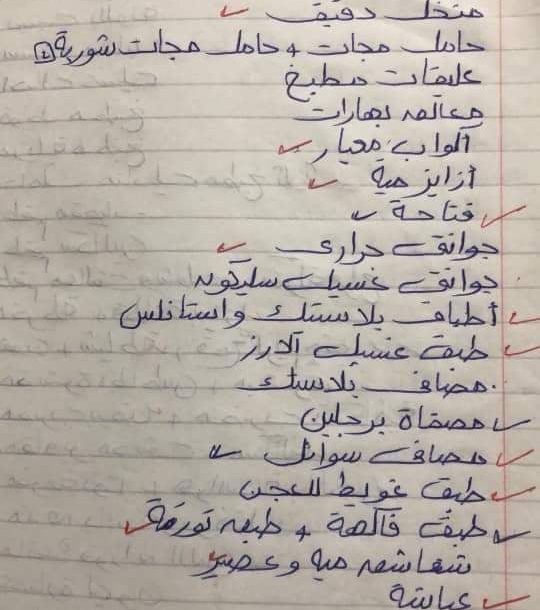 منخل دقيق
حامل مجات + حامل مجات شوربة
علاقات مطبخ
معالق بهارات
أكواب معيار
أزايز مية
فتاحة
جوانتى حرارى
جوانتى غسيل سليكون
أطباق بلاستك واستانلس
طبق غسيل الارز
مصافى بلاستك
مصفاة برجلين
مصافى سوائل
طبق غويط للعجن
طبق فاكهة + طبق تورتة
شفاشق مية وعصير
عباشة